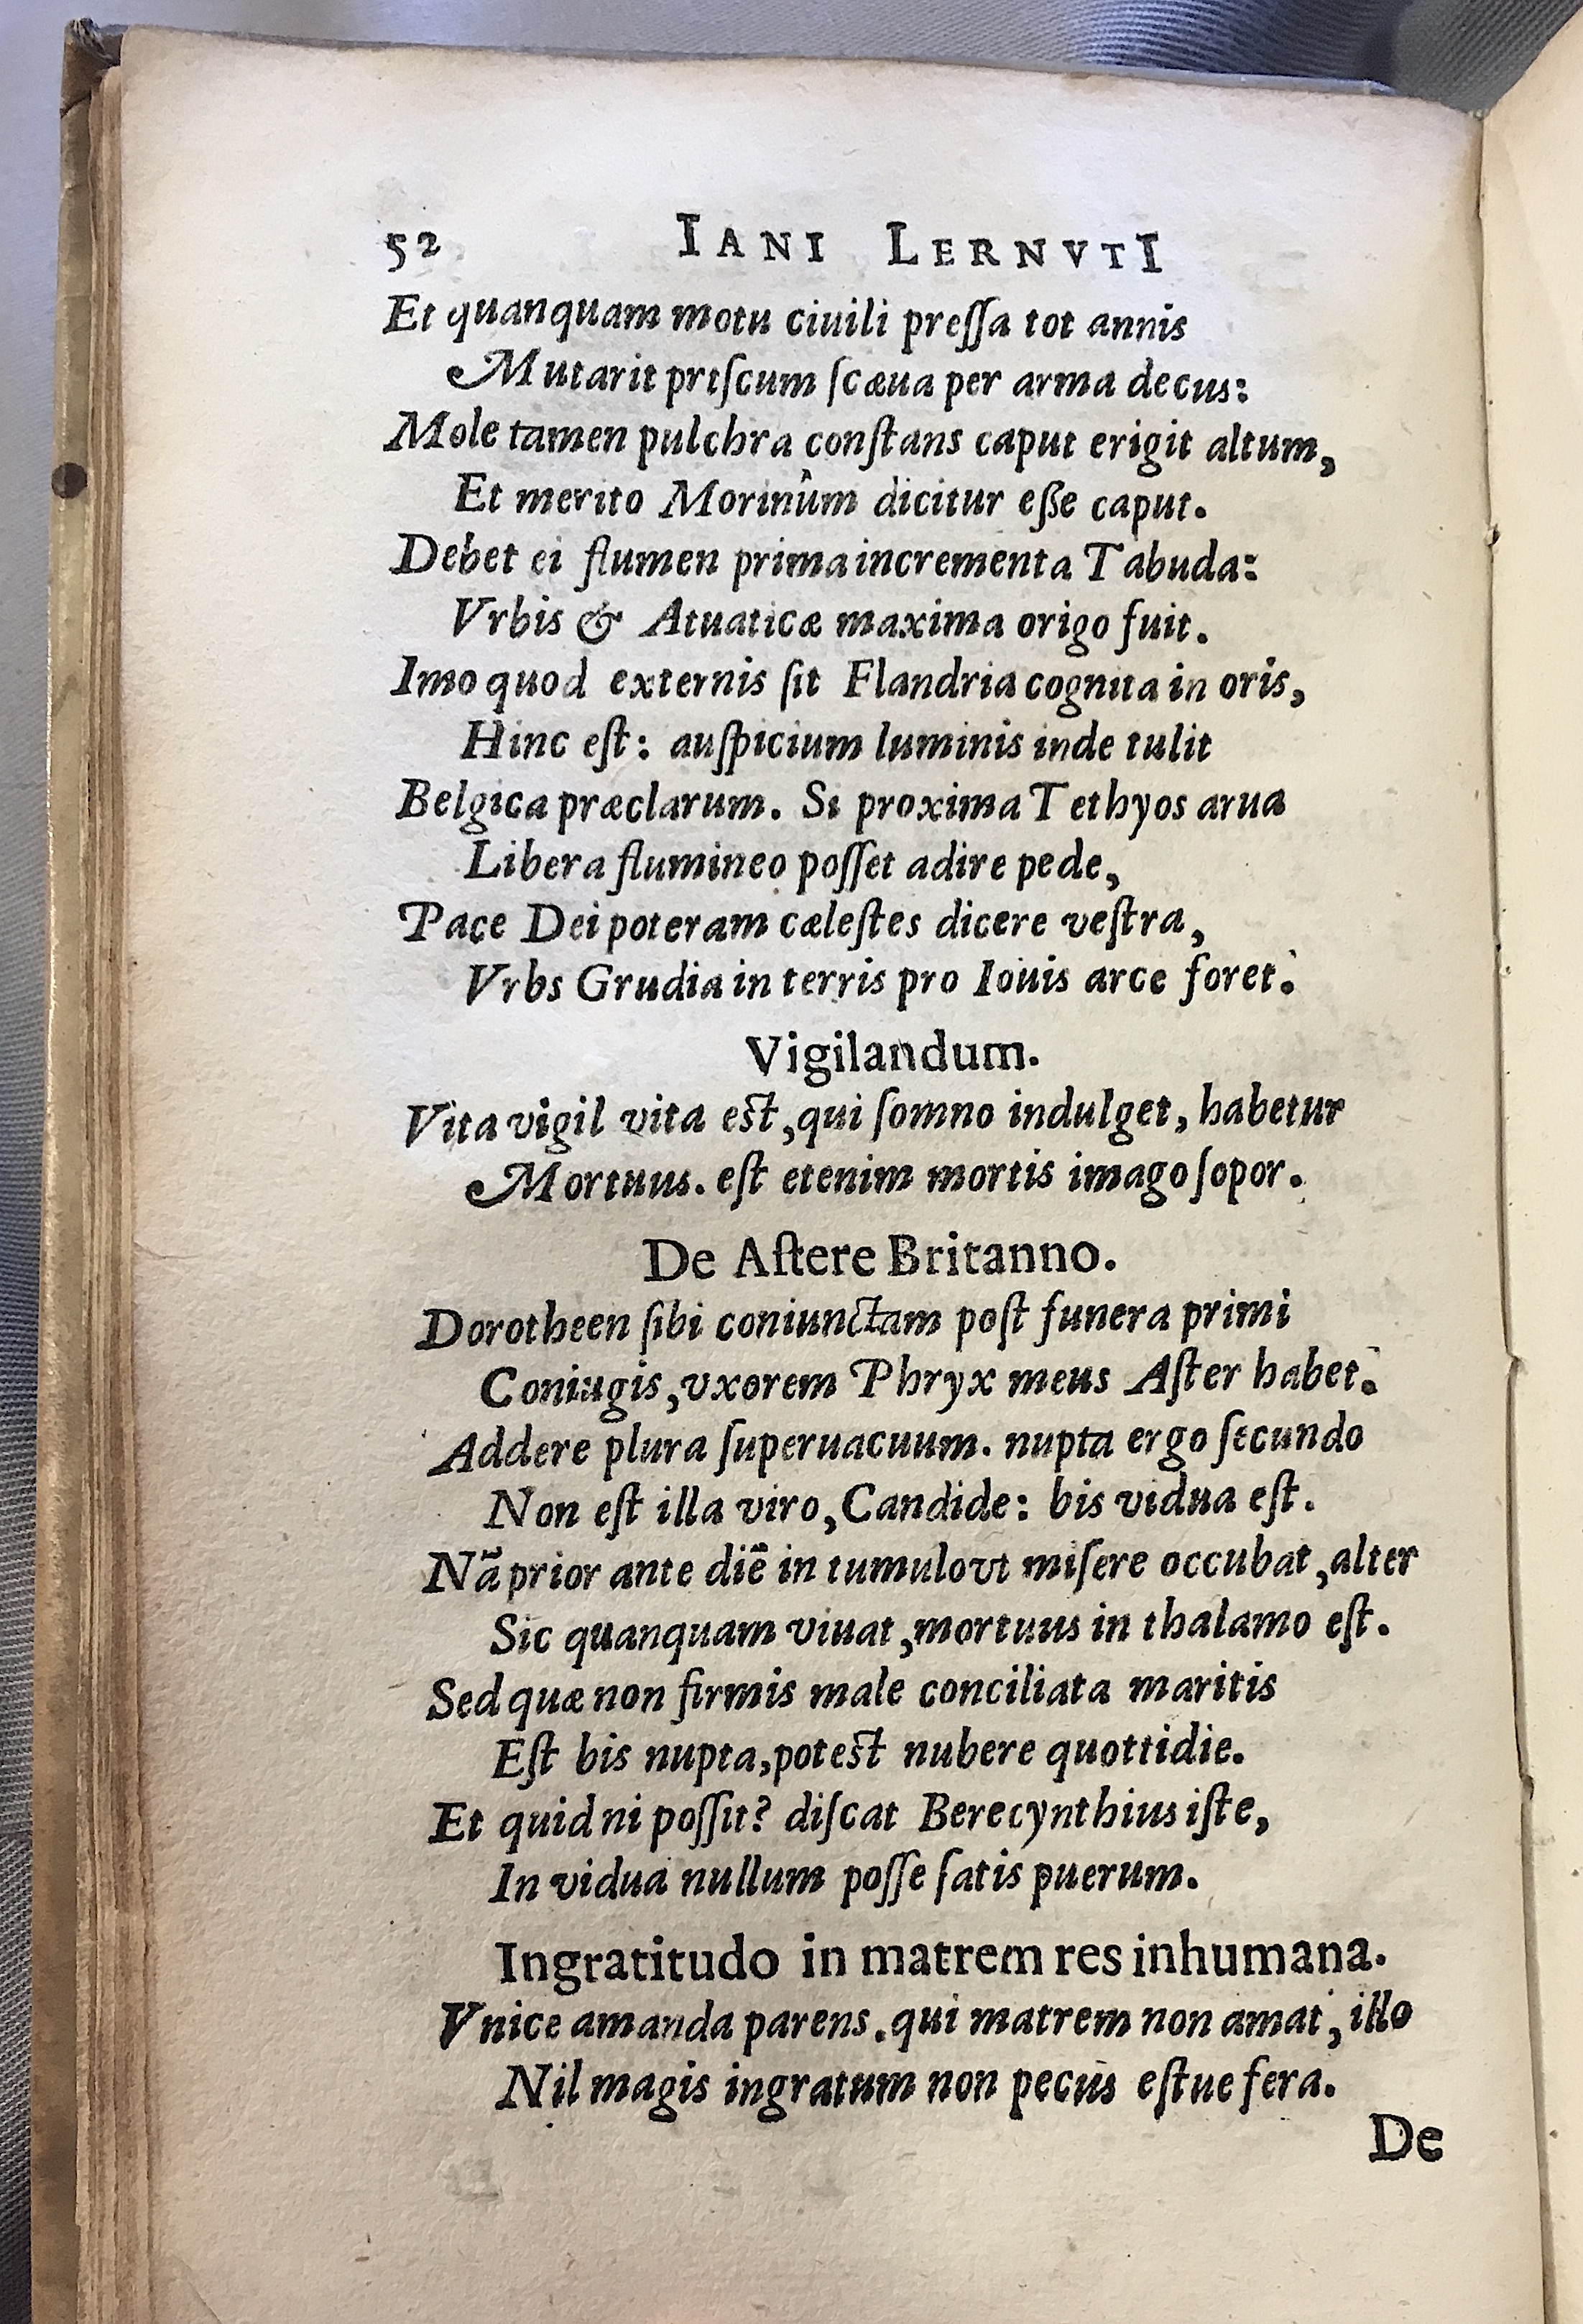 52 IANI LERNVTI
Et quanquam motu ciuili preſſa tot annis
Mutarit priſcum ſcæua per arma decus:
Mole tamen pulchra conſtans caput erigit altum,
Et merito Morinûm dicitur eſſe caput.
Debet ei flumen prima incrementa Tabuda:
Vrbis & Atuaticæ maxima origo fuit.
Imo quod externis ſit Flandria cognita in oris,
Hinc eſt: auſpicium luminis inde tulit
Belgica præclarum. Si proxima Tethyos arua
Libera flumineo poſſet adire pede,
Pace Dei poteram cæleſtes dicere veſtra,
Vrbs Grudia in terris pro Iouis arce foret.
Vigilandum.
Vita vigil vita eſt, qui ſomno indulget, habetur
Mortuus. eſt etenim mortis imago ſopor.
De Aſtere Britanno.
Dorotheen ſibi coniunctam poſt funera primi
Coniugis, vxorem Phryx meus Aſter habet.
Addere plura ſuperuacuum. nupta ergo ſecundo
Non eſt illa viro, Candide: bis vidua eſt.
Nã prior ante diẽ in tumulo vt miſere occubat, alter
Sic quanquam viuat, mortuus in thalamo eſt.
Sed quæ non firmis male conciliata maritis
Eſt bis nupta, poteſt nubere quottidie.
Et quidni poſſit? diſcat Berecynthius iſte,
In vidua nullum poſſe ſatis puerum.
Ingratitudo in matrem res inhumana.
Vnice amanda parens. qui matrem non amat, illo
Nil magis ingratum non pecus eſtue fera.
De